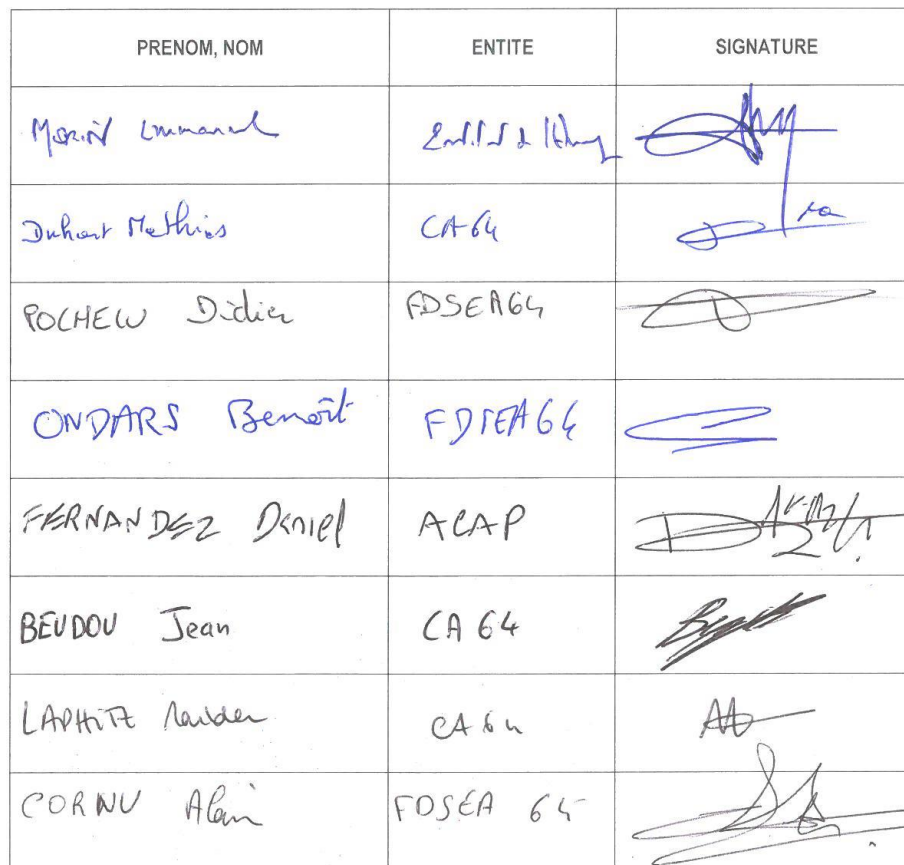 PRENOM, NOM ENTITE SIGNATURE
Emmanuel
Duhart Mathias CA64
POCHELU Didier FDSEA64
ONDARS Benoît FDSEA64
FERNANDEZ Daniel ACAP
BEUDOU Jean CA 64
LAPHITZ CA 64
CORNU Alain FDSEA 64